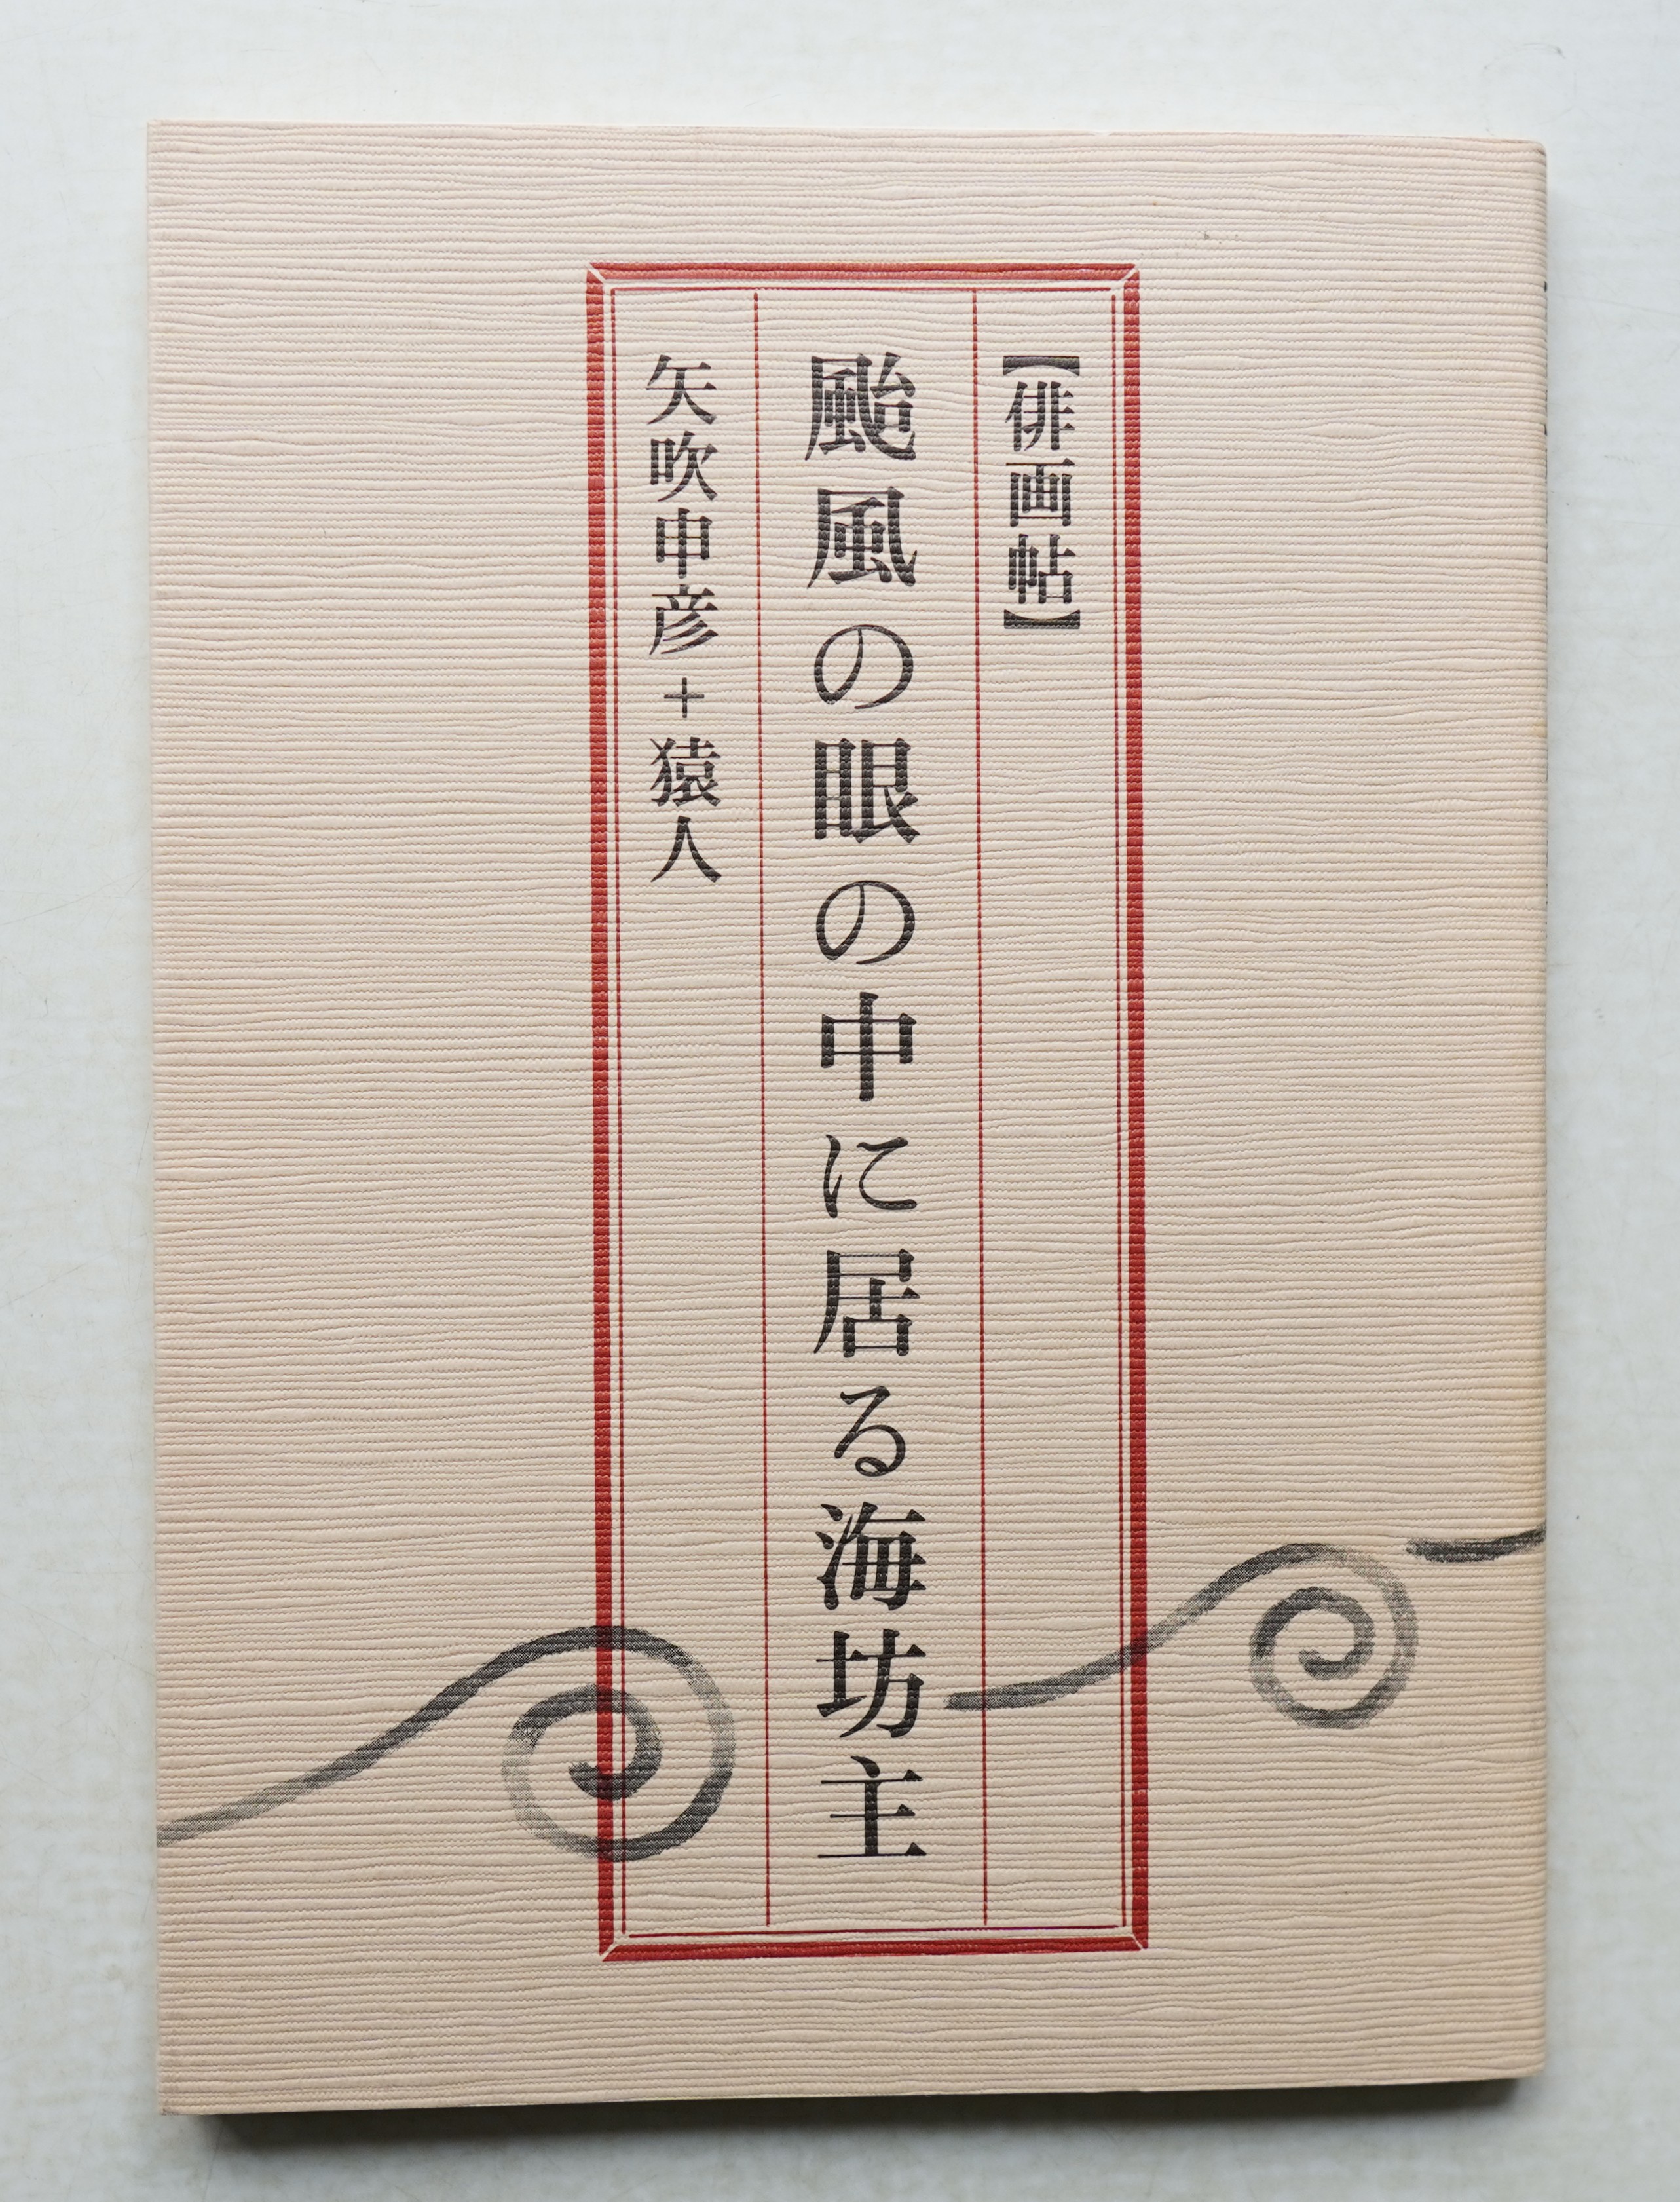 【俳画帖】
颱風の眼の中に居る海坊主
矢吹申彦+猿人